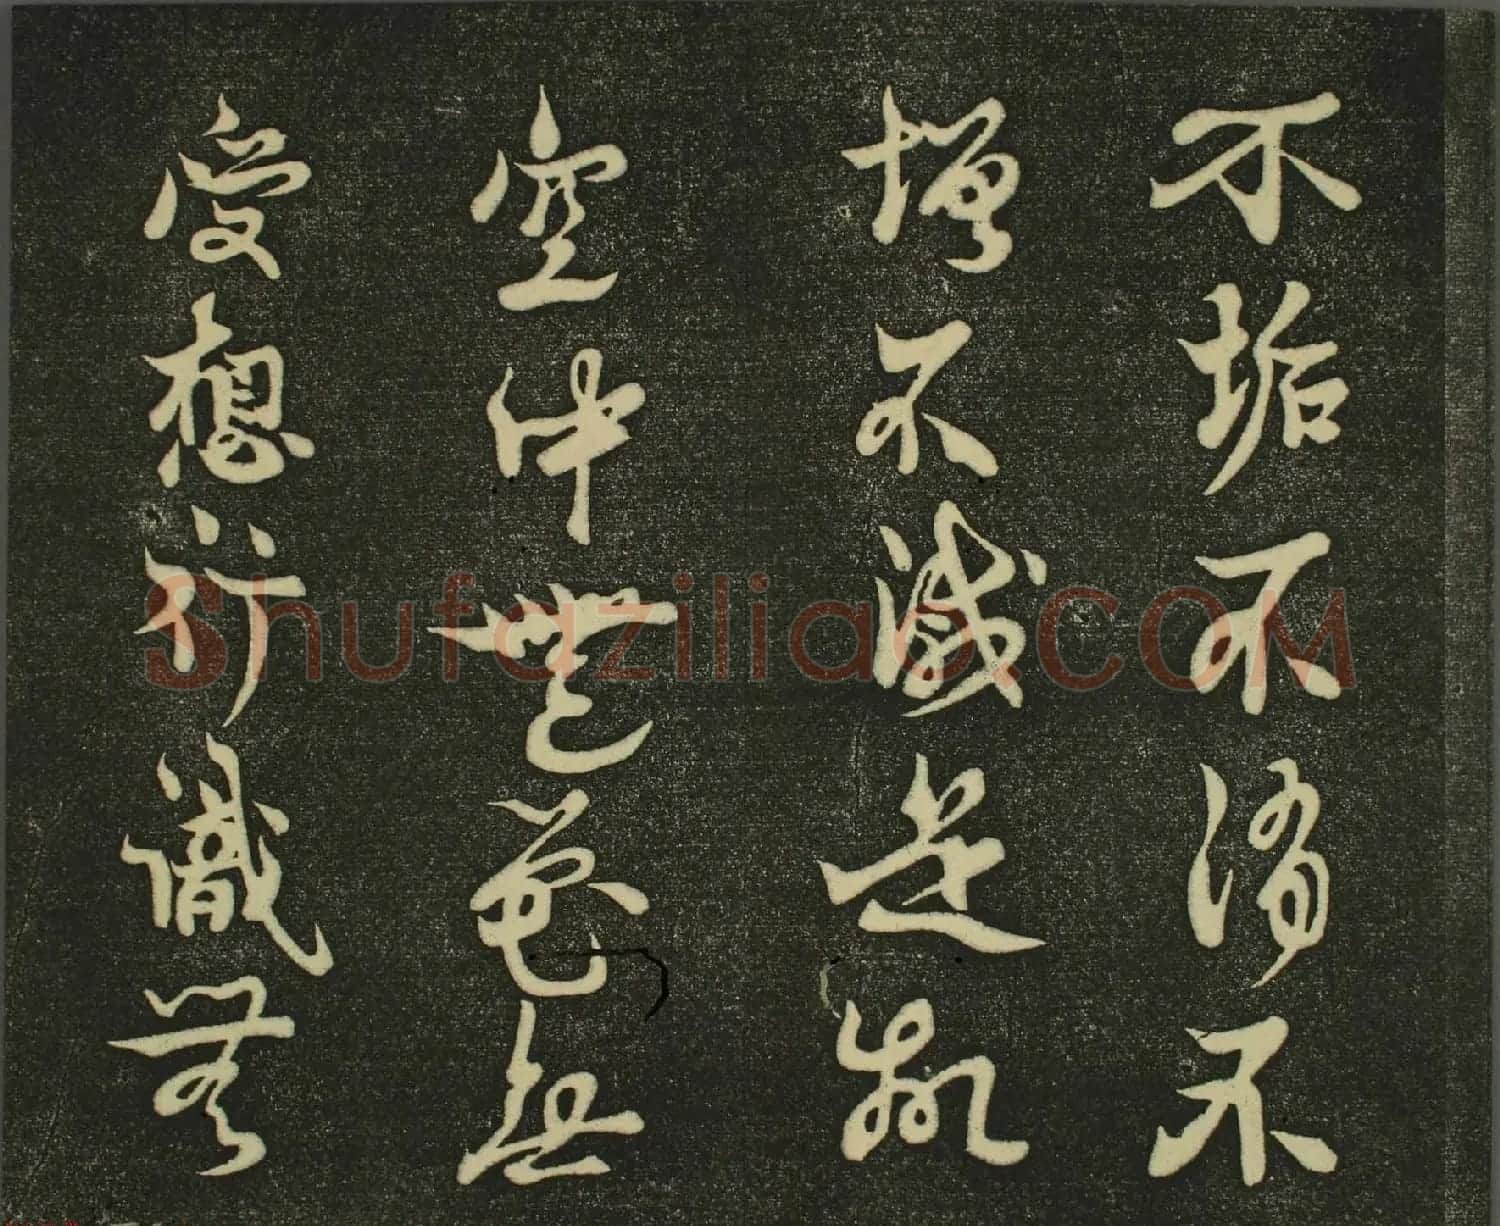 不垢不淨不
增不減是故
空中無色無
受想行識無
Shufaziliao.COM